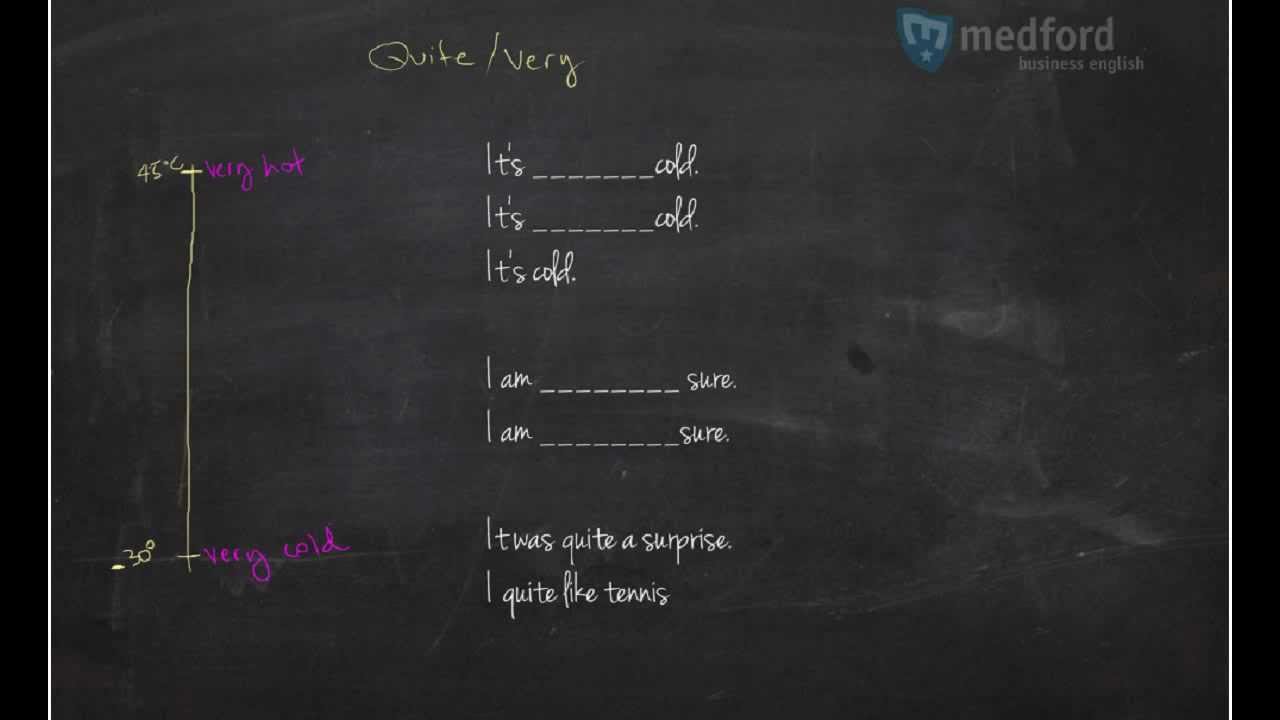 medford
business english
Quite/very
45°C very hot
It's _______ cold.
It's _______ cold.
It's cold.
I am ________ sure.
I am ________ sure.
-30° very cold
It was quite a surprise.
I quite like tennis